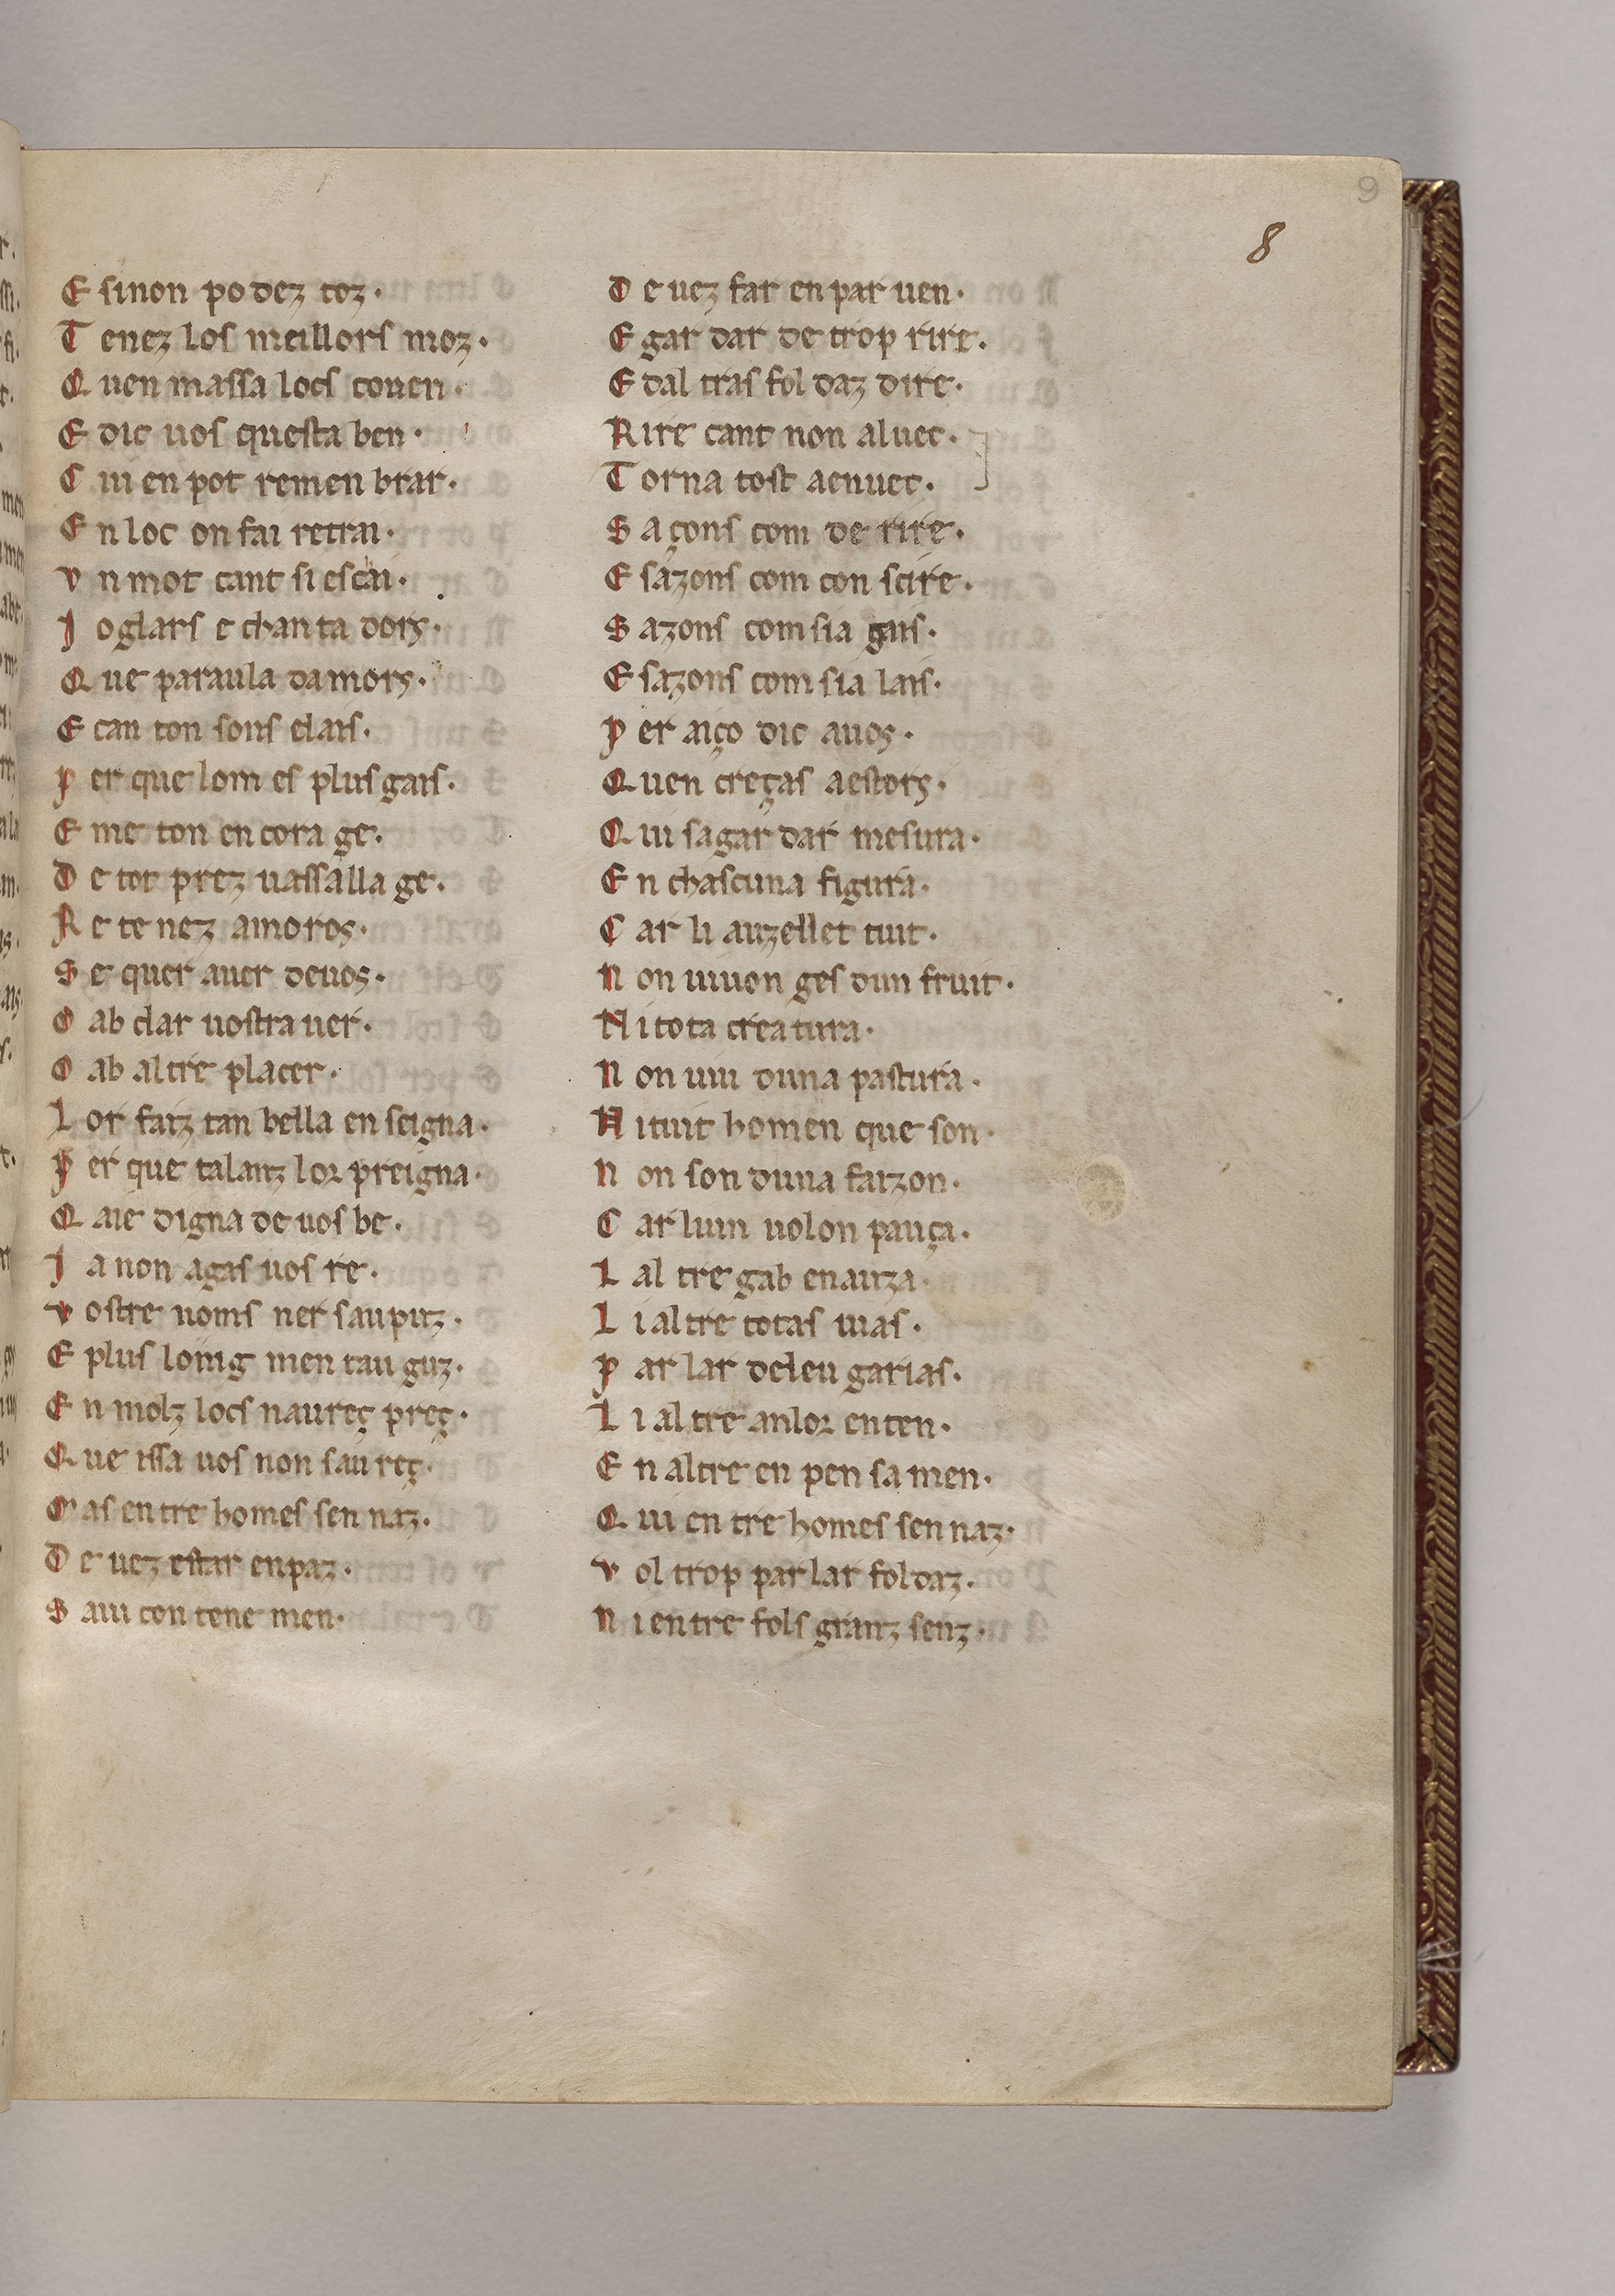 9
8
E sinon podez toz·
T enez los meillors moz·
Q uen massa locs couen·
E dic uos questa ben·
C ui en pot remenbrar·
E n loc on fai retrai·
V n mot cant si escai·
J oglars e chantadors·
Q ue paraula damors·
E can ton sons e lais·
P er que lom es plus gais·
E me ton en corage·
D e tot prez uassallage·
R e tenez amoros·
S e quer auer deuos·
O ab clar uostrauer·
O ab altre placer·
L or faiz tan bella enseigna·
P er que talanz lor preigna·
Q aie digna de uos be·
J a non agas uos re·
V ostre noms ner saupuz·
E plus loing mentauguz·
E n molz locs naureç preç·
Q ue issa uos non saureç·
M as entre homes sennaz·
D e uez estar enpaz·
S aui contenemen·
D e uez far enparuen·
E gardar de trop rire·
E dal tras foldaz dire·
R ire cant non aluec·
T orna tost aenuec·
S açons com de rire·
E sazons com conscire·
S azons com sia gais·
E sazons com sia lais·
P er aiço dic auos·
Q uen creças aestors·
Q ui sagardar mesura·
E n chascuna figura·
C ar li auzellet tuit·
N on uiuon ges dun fruit·
N i tota creatura·
N on uiu duna pastura·
N i tuit homen que son·
N on son duna faizon·
C ar luin uolon pauça·
L altre gab enauza·
L i altre totas uias·
P arlar deleugarias·
L i altre anlor enten·
E n altre en pensamen·
Q ui entre homes sennaz·
V ol trop parlar foldaz·
N i entre fols granz senz·